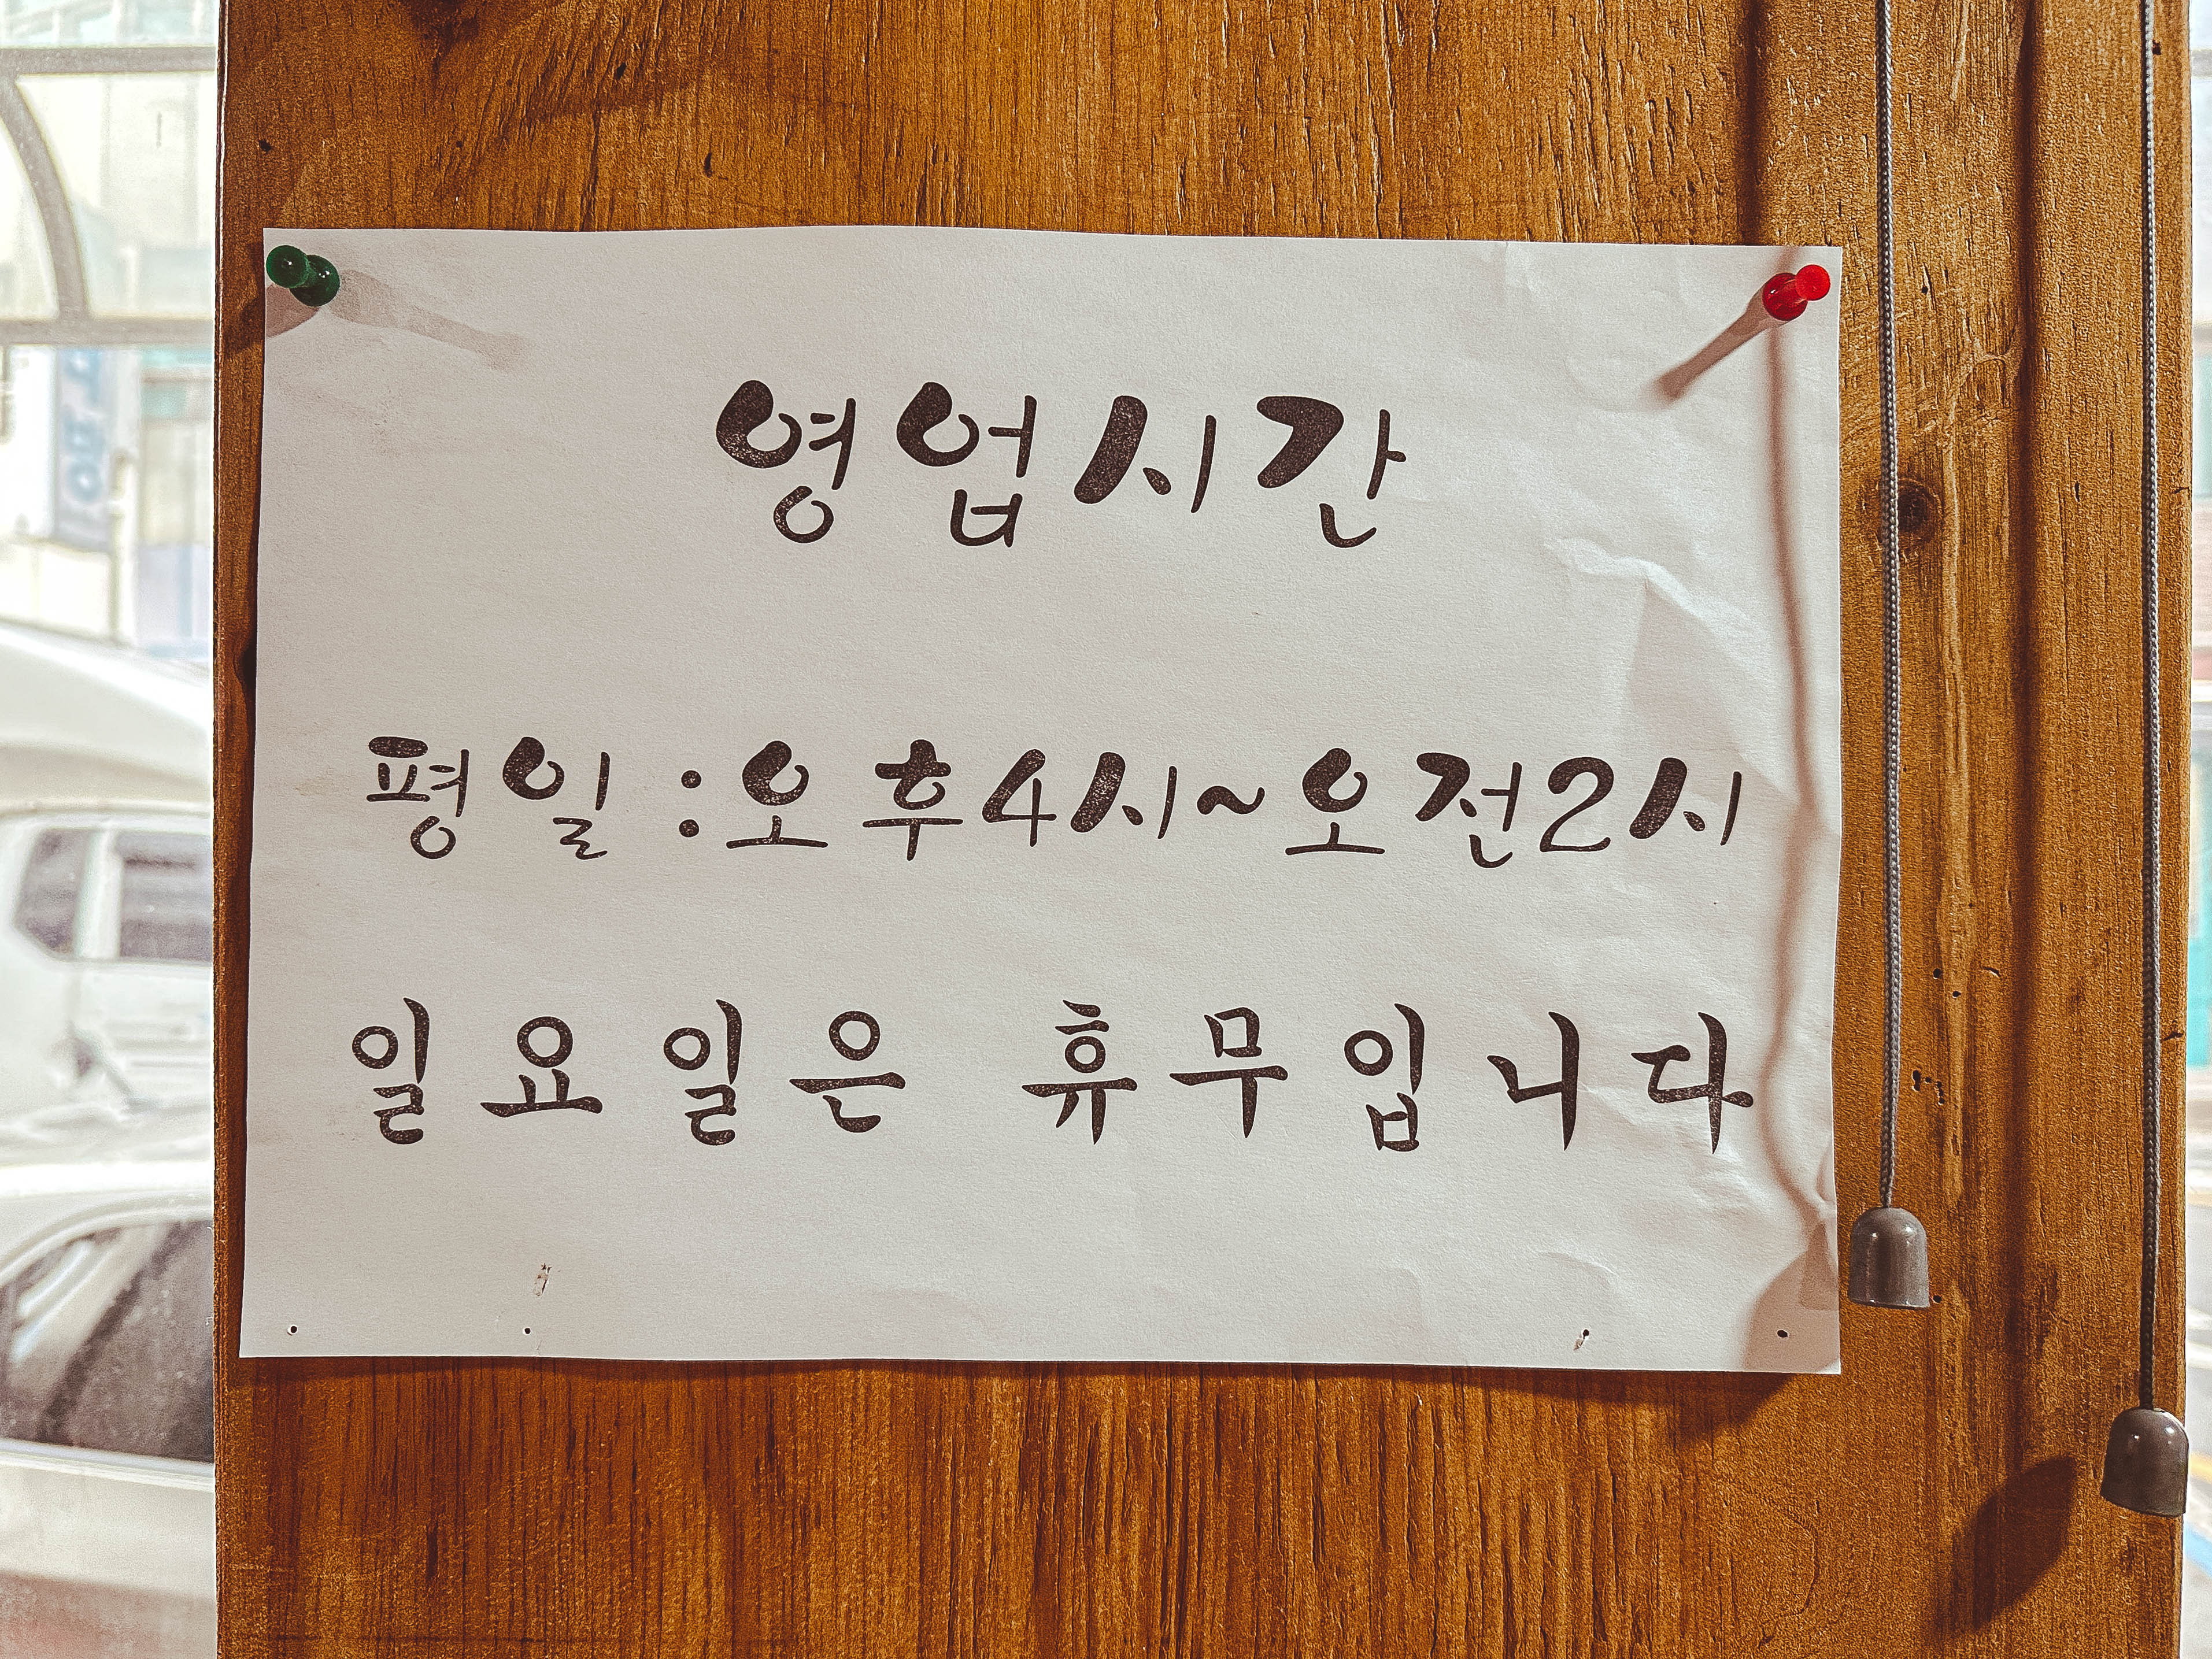 영업시간
평일 :오후4시~오전2시
일요일은 휴무입니다